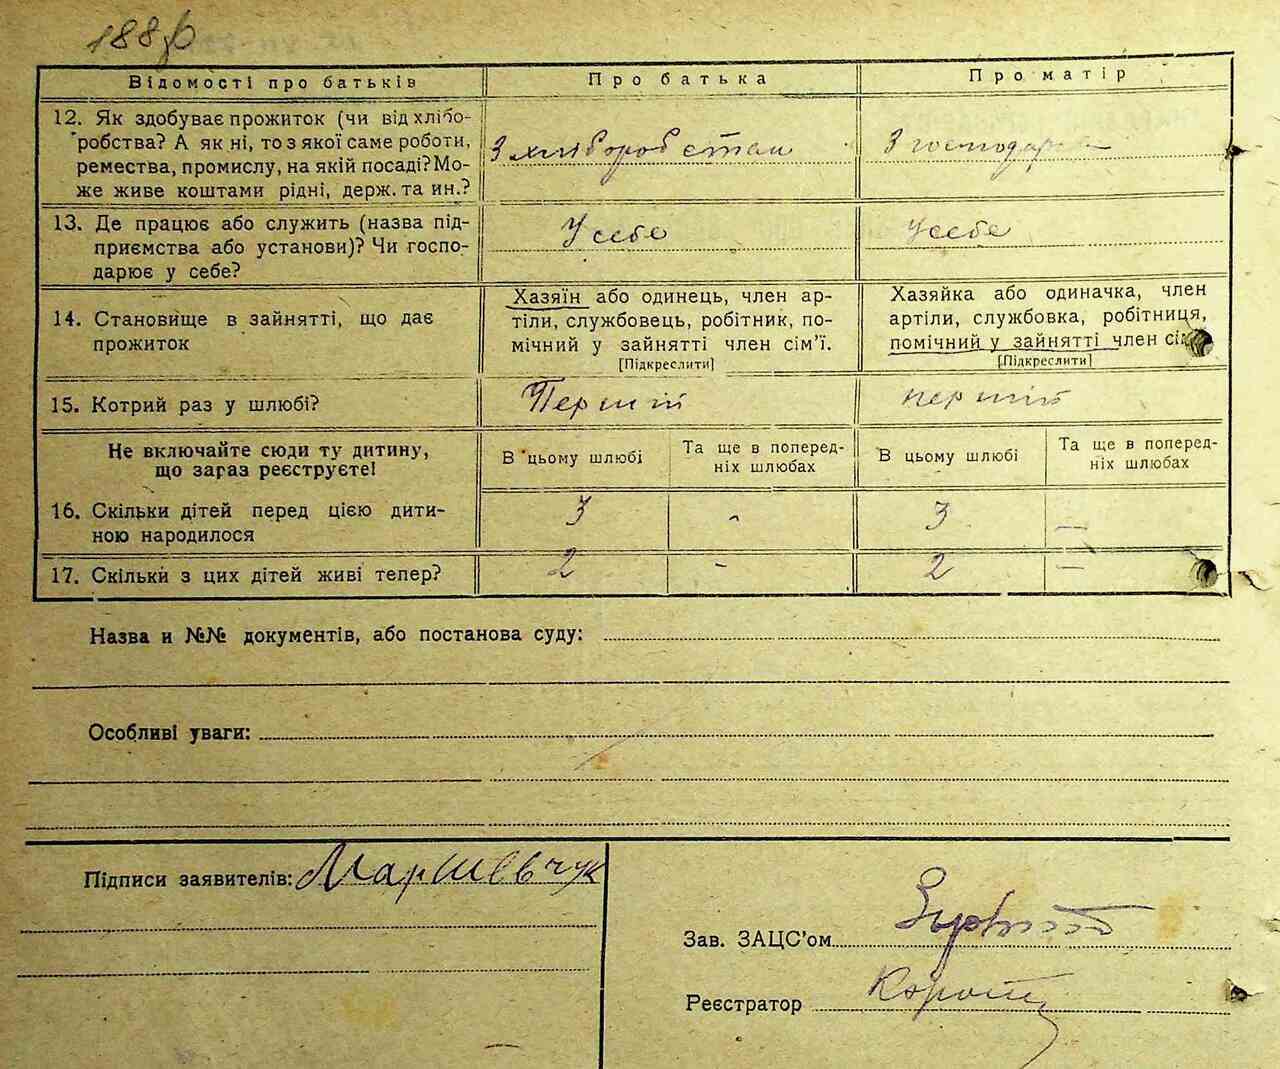 188
Відомості про батьків
Про батька
Про матір
12. Як здобуває прожиток (чи від хлібо-
робства? А як ні, то з якої саме роботи,
ремества, промислу, на якій посаді? Мо-
же живе коштами рідні, держ. та ин.?
З хліборобства
З господарства
13. Де працює або служить (назва під-
приємства або установи)? Чи госпо-
дарює у себе?
У себе
У себе
14. Становище в зайнятті, що дає
прожиток
Хазяїн або одинець, член ар-
тіли, службовець, робітник, по-
мічний у зайнятті член сім'ї.
[Підкреслити]
Хазяйка або одиначка, член
артіли, службовка, робітниця,
помічний у зайнятті член сім
[Підкреслити]
15. Котрий раз у шлюбі?
Перший
перший
Не включайте сюди ту дитину,
що зараз реєструєте!
В цьому шлюбі
Та ще в поперед-
ніх шлюбах
В цьому шлюбі
Та ще в поперед-
ніх шлюбах
16. Скільки дітей перед цією дити-
ною народилося
3
-
3
—
17. Скільки з цих дітей живі тепер?
2
-
2
—
Назва и №№ документів, або постанова суду:
Особливі уваги:
Підписи заявителів:
Зав. ЗАЦС'ом
Реєстратор